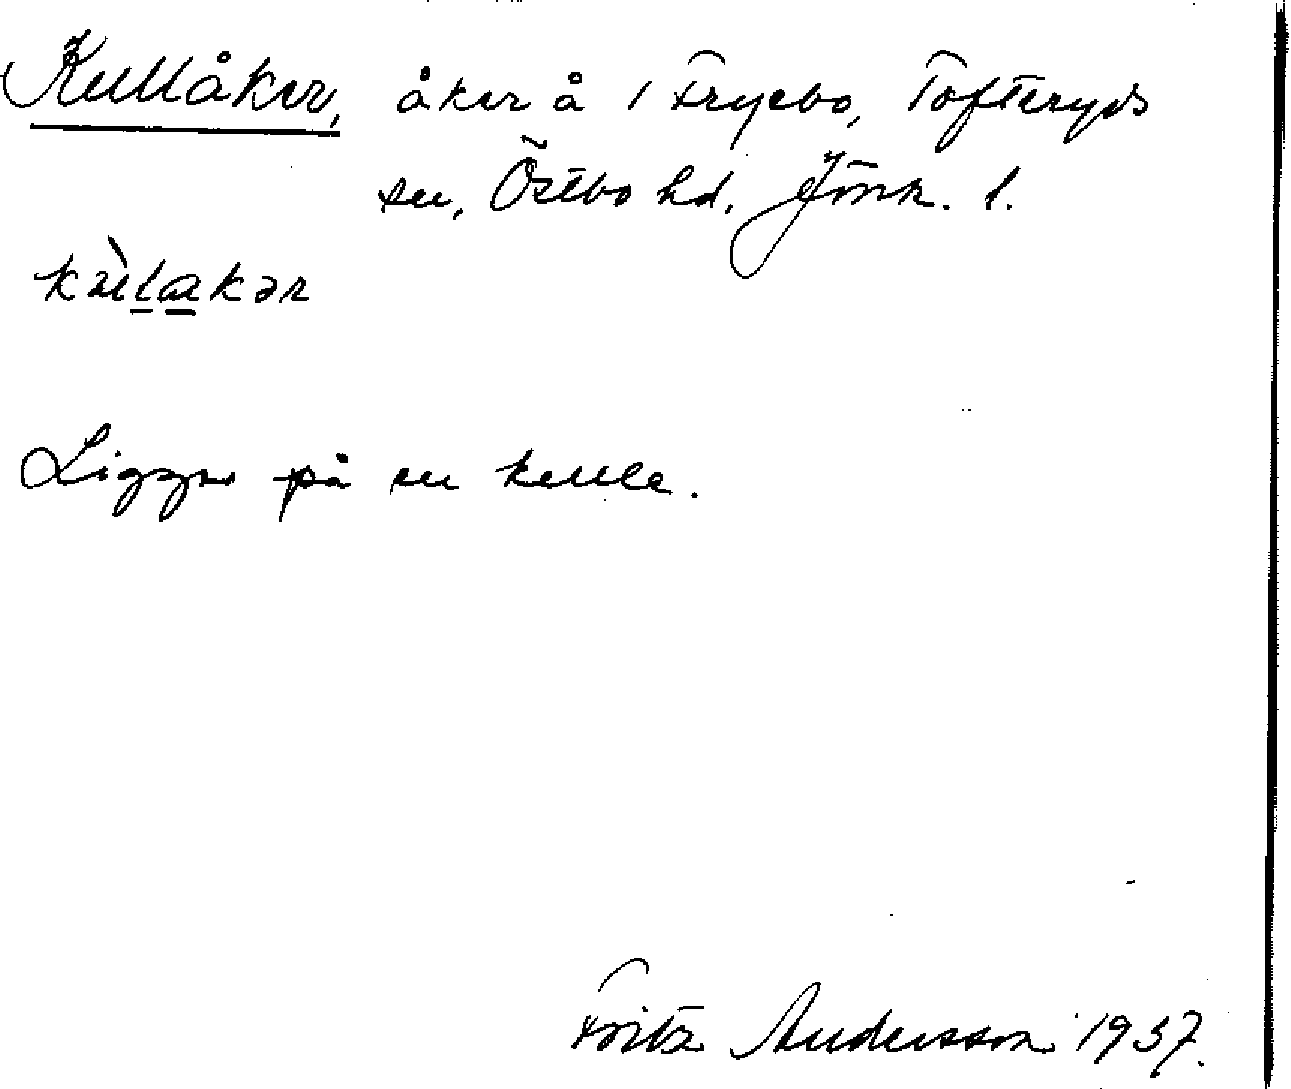 Kullåker, åker å 1 Frycbo, Tofteryds
sn, Östbo hd, Jönk. l.
Ligger på en kulle.
Fritz Andersson 1937.